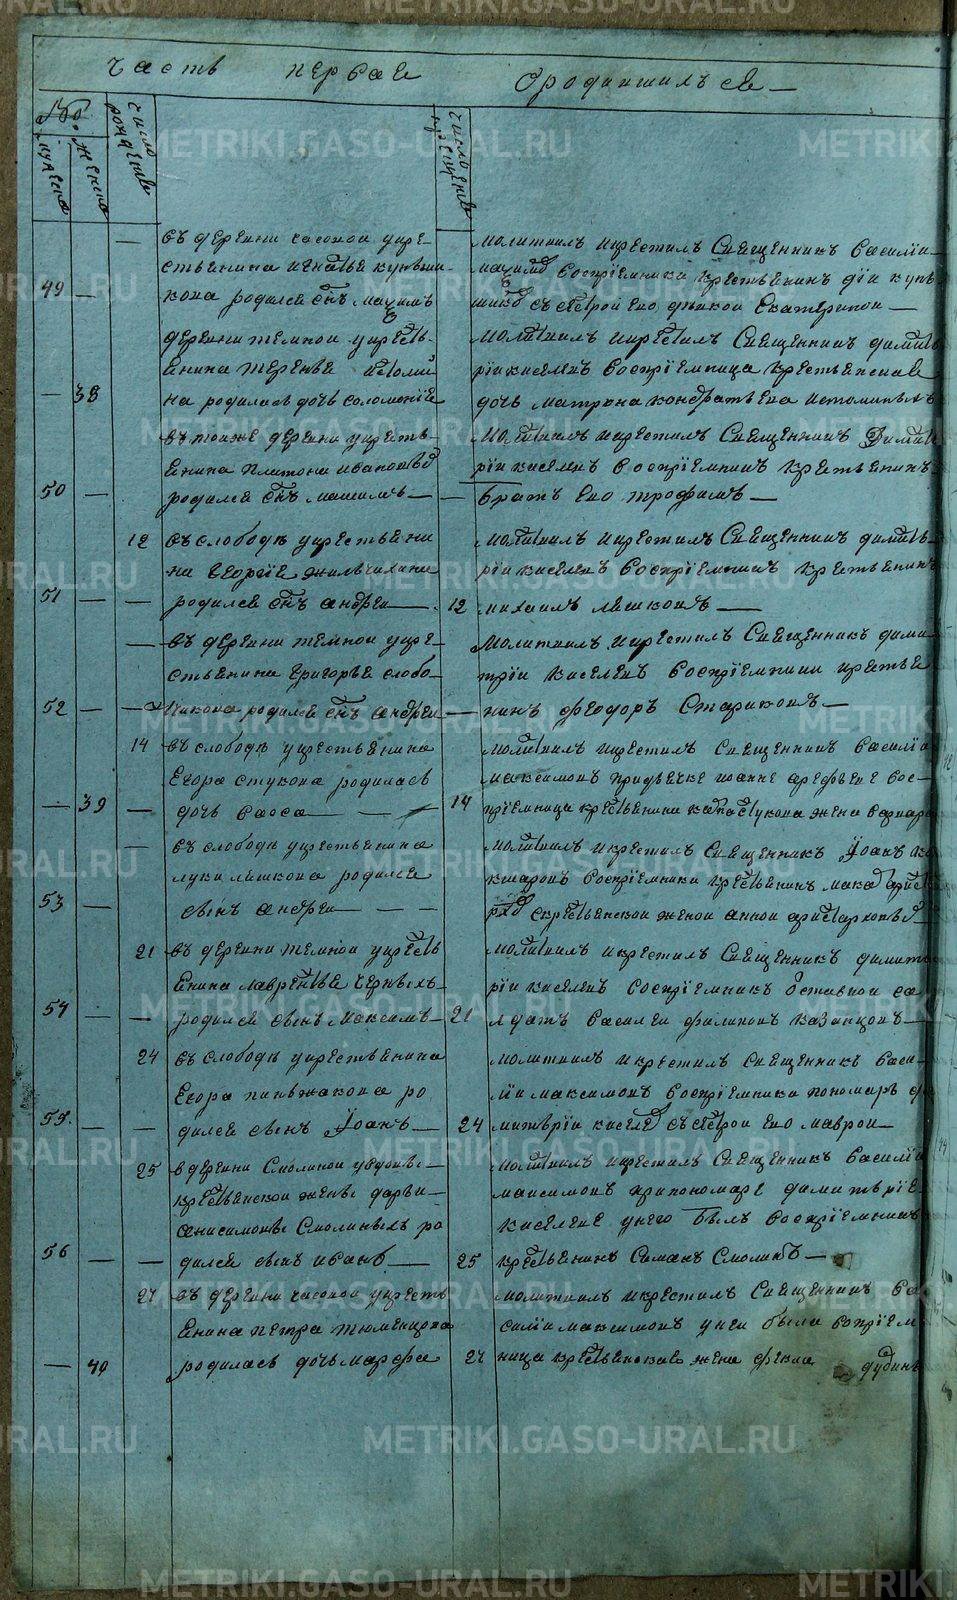 часть первая о родившихся
№.
мужеска
женска
число рождения
число крещения
— въ деревни часовой у кре-
стьенина игнатье купчи-
49 — кова родился снъ маѯимъ
молитвилъ икрестилъ Священникъ василии
маѯимов воспрiемники крестьенинъ
с сестрой ево девкой Екатериной —
деревни темной у крестъ-
енина терентье истоми
— 38 на родилась дочь соломонiе
молитвилъ икрестилъ Священникъ димит
рiи киселевъ воспрiемница крестьенскае
дочь матрона кондратьева истоминыхъ
в тоиже деревни укресть-
енина платона иванова
50 — родился снъ максимъ —
молитвилъ икрестилъ Священникъ Димит
рiи киселев воспрiемник крестьенинъ
— братъ ево трофимъ —
12 въ слободе у крестьени
на георгiе
51 — — родился снъ андреи — 12
молитвилъ икрестилъ Священникъ димит
рiи киселев воспрiемник крестьенинъ
михаилъ пешковъ —
— въ деревни темной укре-
стьенина григорье слобо-
52 — — чикова родился снъ андреи —
молитвилъ икрестилъ Священникъ дими
трiи киселевъ воспрiемник крестье
нинъ феодоръ Стариковъ —
14 въ слободе укрестьенина
егора стукова родилась
— 39 — дочь васса — 14
молитвилъ икрестилъ Священникъ василiи
максимовъ придьечке иоанне арефьеве вос-
прiемница крестьенина стукова жена варвара
— въ слободе укрестьенина
луки пешкова родился
53 — сынъ андреи — —
молитвилъ икрестилъ Священникъ Iоанъ ко
кшаровъ воспрiемники крестьенинъ
скрестьенской женой анной аристарховой
21 въ деревни темной укресть
енина лаврентье черныхъ
54 — — родился сынъ Максимъ — 21
молитвилъ икрестилъ Священникъ димит
рiи киселевъ воспрiемникъ отставной со
лдатъ василеи филиповъ казанцовъ —
24 въ слободе укрестьенина
Егора пинжакова ро
55. — — дился сынъ Iоанъ — 24
молитвилъ икрестилъ Священникъ васи
лiи максимовъ воспрiемники пономаръ
митрiи киселев с сестрой ево маврой —
25 вдеревни Смолиной увдовые
крестьенской жены дарьи
анисимовы Смолиныхъ ро
56 — — дился сынъ иванъ — 25
молитвилъ икрестилъ Священникъ василiи
максимовъ припономаре димитрiе
киселеве унего былъ воспрiемникъ
крестьенинъ Симанъ Смолинъ —
27 въ деревни часовой укресть
енина петра тюменцова
— 40 родилась дочь марфа 27
молитвилъ икрестилъ Священникъ ва
силiи максимовъ унеи была воспрiем
ница крестьенскае жена фекла дубинъ
METRIKI.GASO-URAL.RU